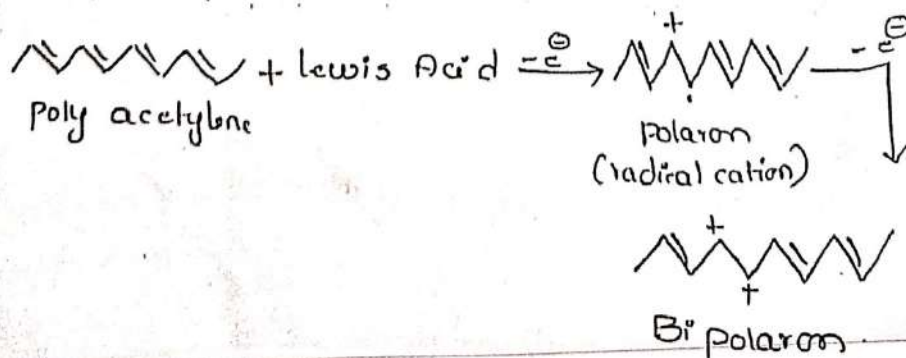 + Lewis Acid -e⊖ → + · -e⊖
Poly acetylene
polaron
(radical cation)
+
+
Bi polaron